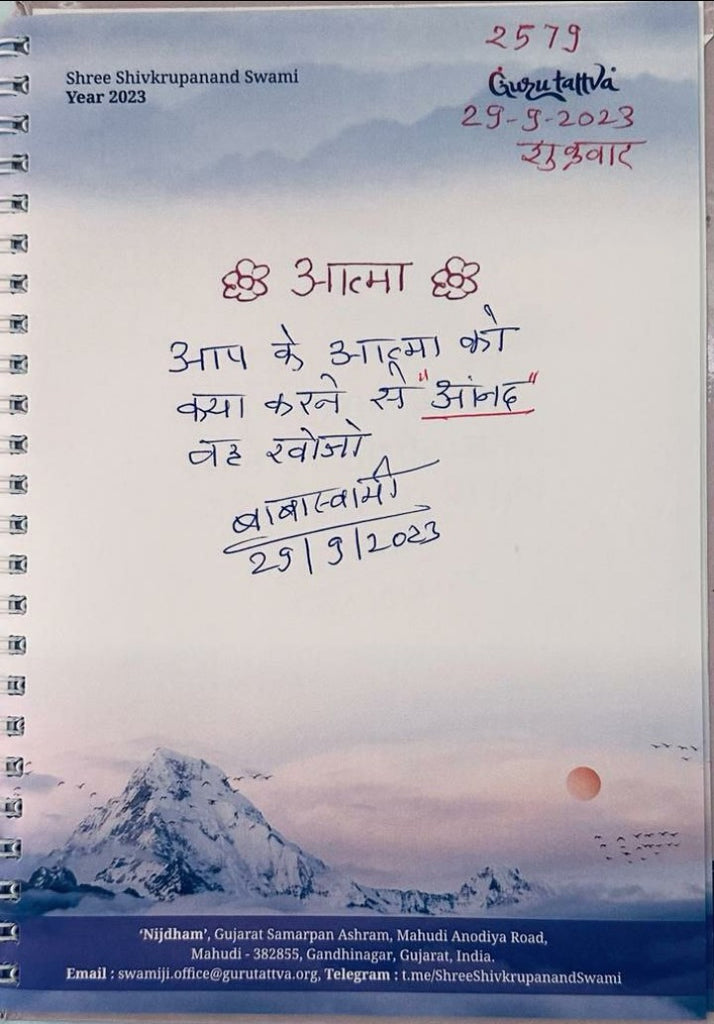 2579
Shree Shivkrupanand Swami
Year 2023
Gurutattva
29-9-2023
शुक्रवार
आत्मा
आप के आत्मा को
क्या करने से "आंनद"
वह खोजो
बाबास्वामी
29/9/2023
'Nijdham', Gujarat Samarpan Ashram, Mahudi Anodiya Road,
Mahudi - 382855, Gandhinagar, Gujarat, India.
Email : swamiji.office@gurutattva.org, Telegram : t.me/ShreeShivkrupanandSwami